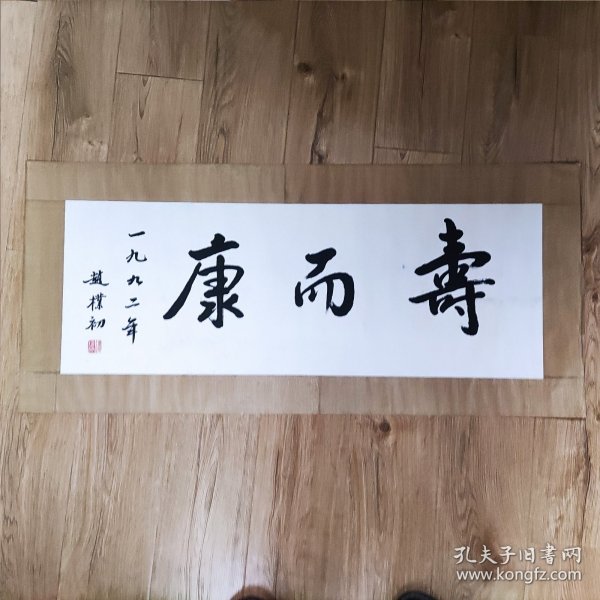 壽而康
一九九二年
趙樸初
孔夫子旧書网
www.kongfz.com